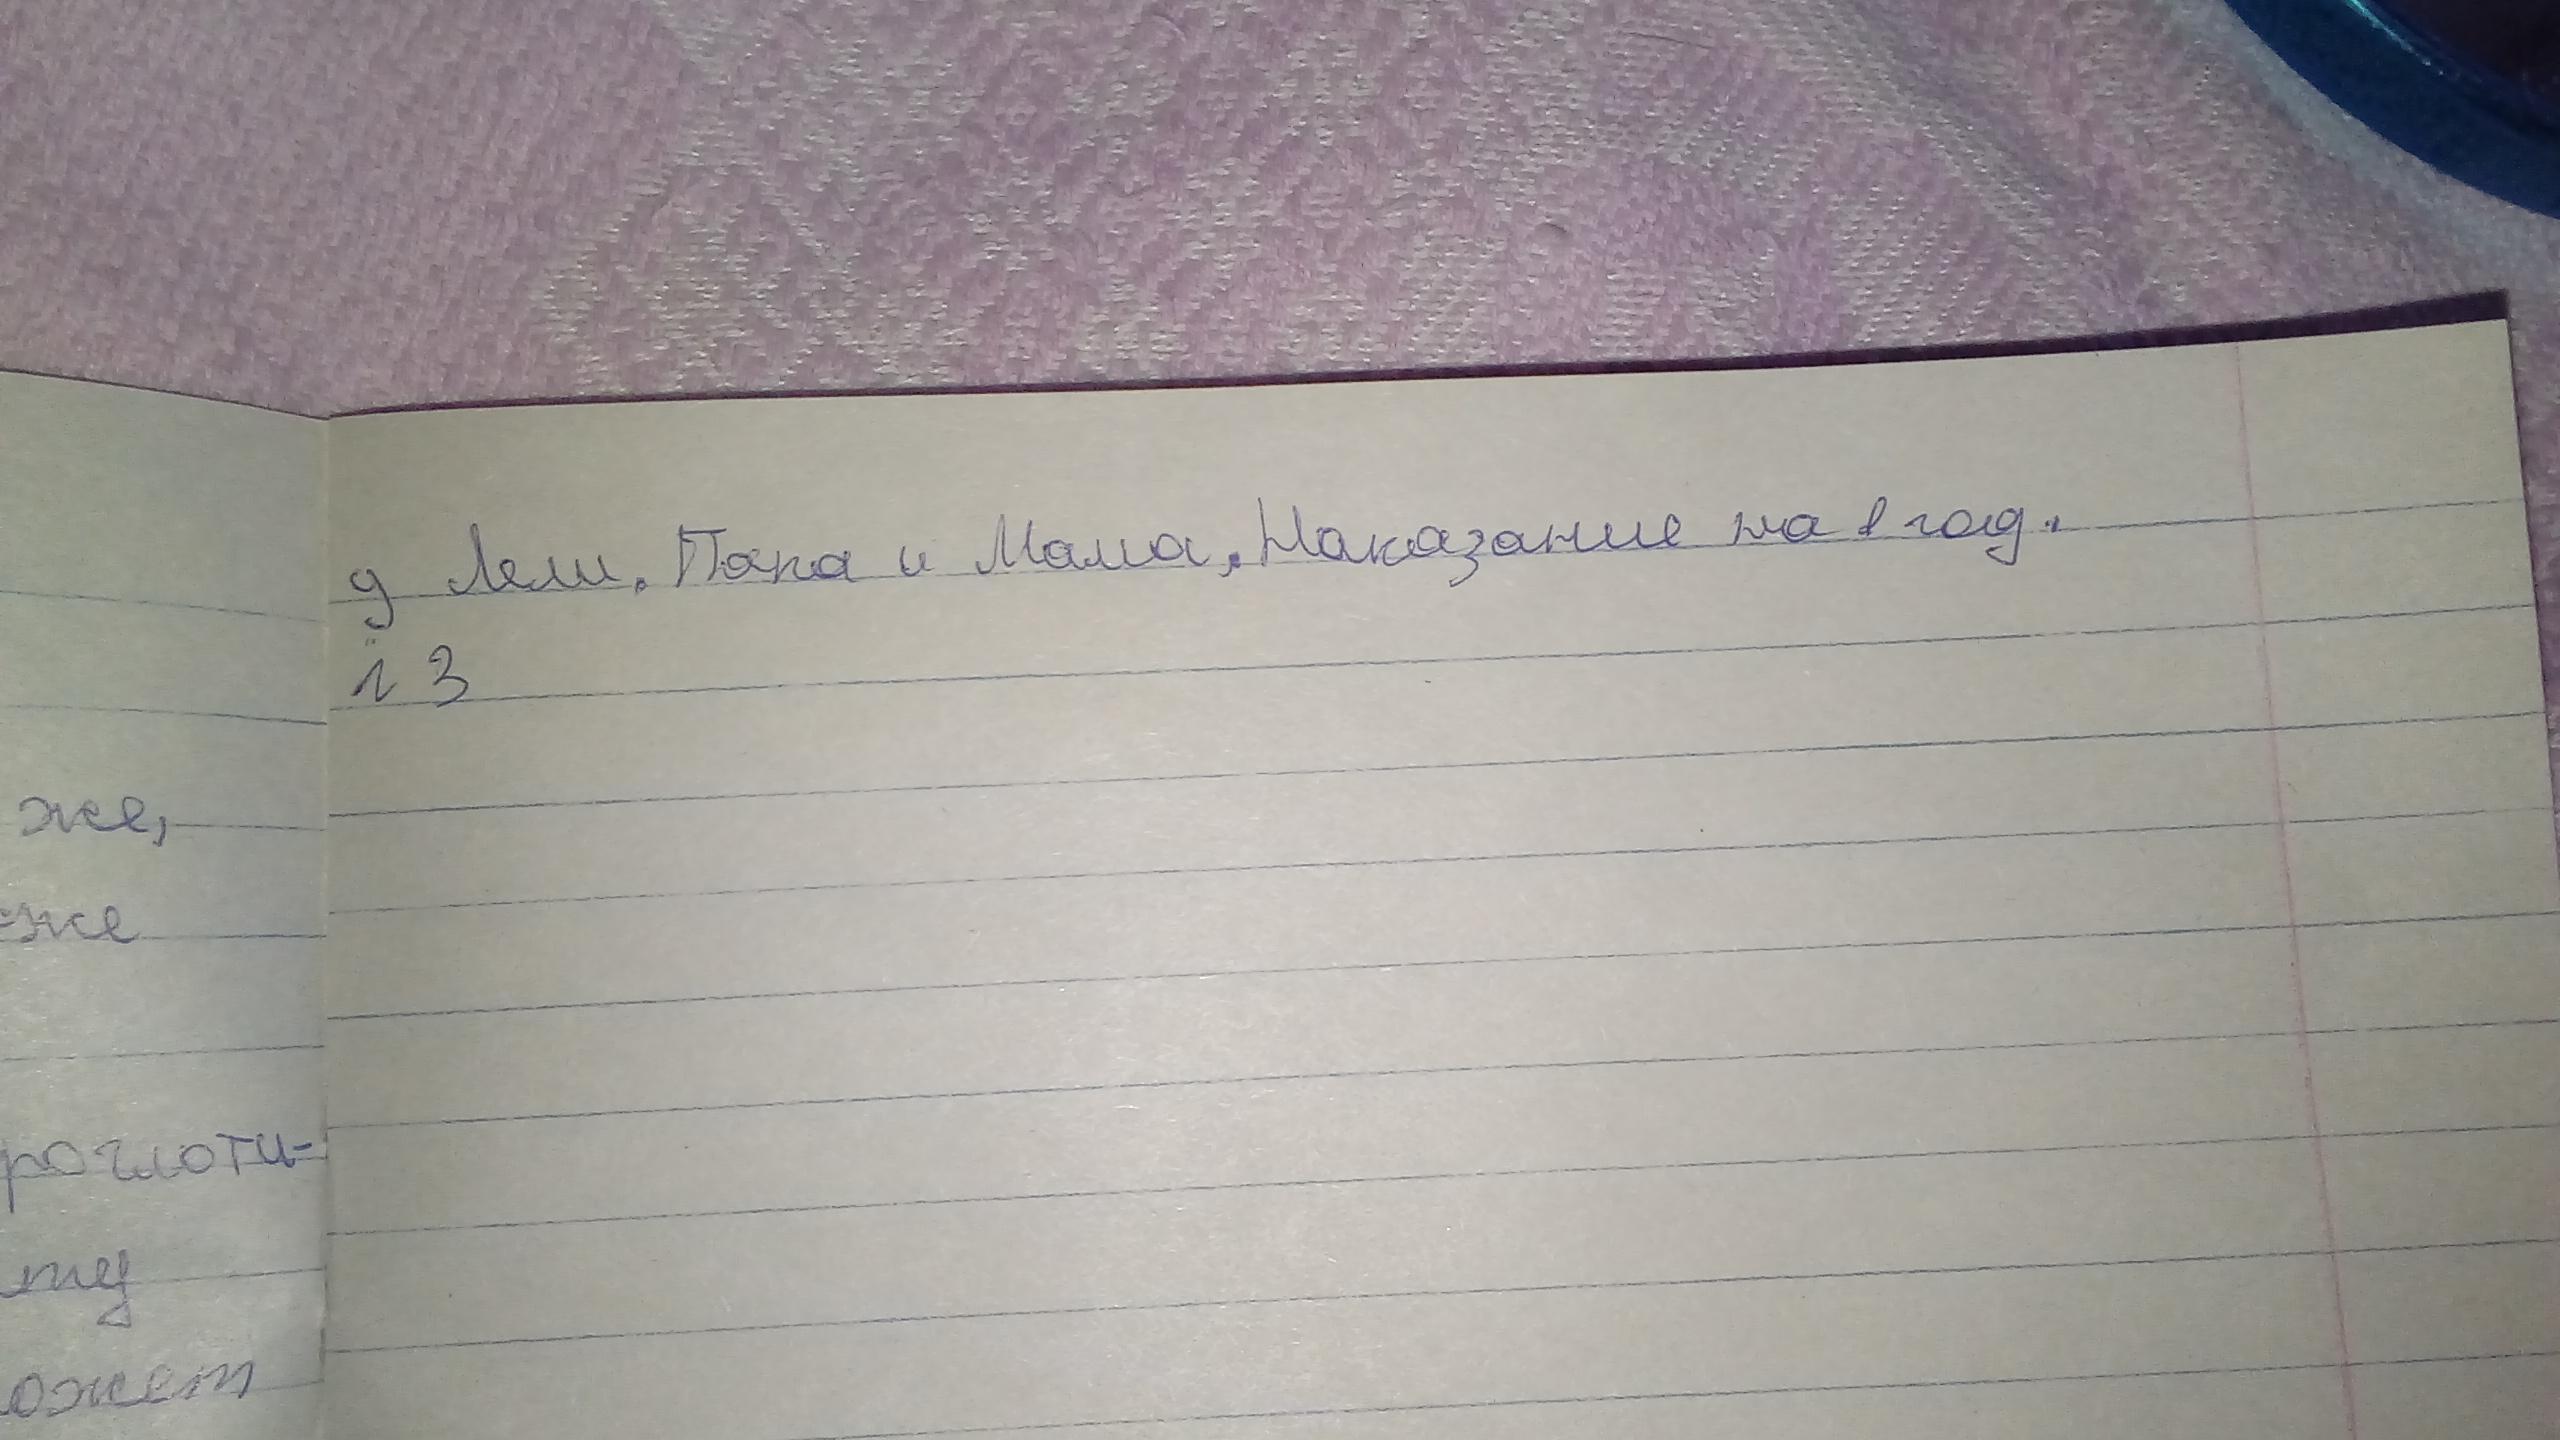 же,
же
роглоти-
ту
ожет
д Лели. Папа и Мама. Наказание на 1 год.
й 3